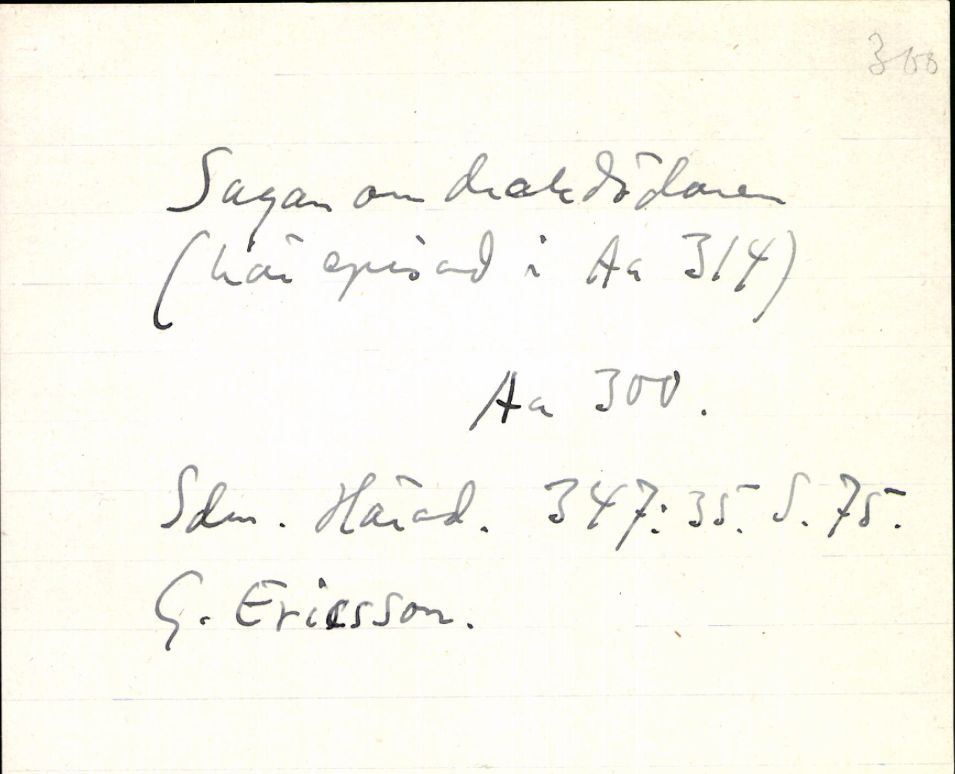 300
Sagan om drakdödaren
(här episod i Aa 314)
Aa 300.
Sdm. Härad. 347:35. S. 75.
G. Ericsson.